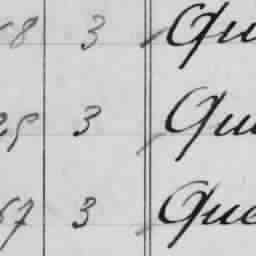 68 3 Qu
29 3 Qu
67 3 Que